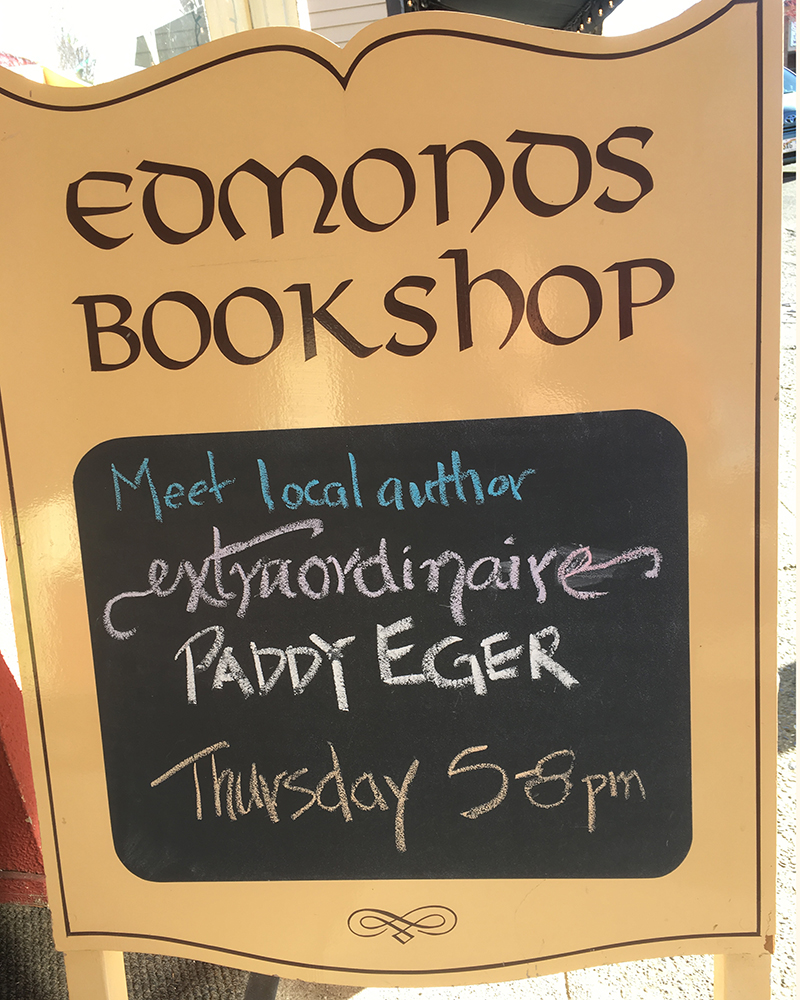 EDMONDS
BOOKSHOP
Meet local author
extraordinaire
PADDY EGER
Thursday 5-8pm